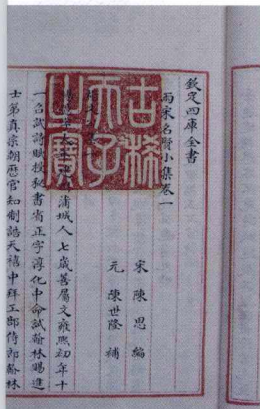 欽定四庫全書
兩宋名賢小集卷一
宋 陳思 編
元 陳世隆 補
蒲城人七歲善屬文雍熙初年十
一召試詩賦授秘書省正字淳化中命試翰林賜進
士第真宗朝歷官知制誥天禧中拜工部侍郎翰林
古稀天子之寶